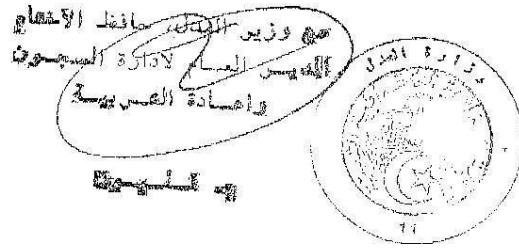 عن وزير العدل، حافظ الأختام
المدير العام لإدارة السجون
وإعادة التربية
وزارة العدل
11